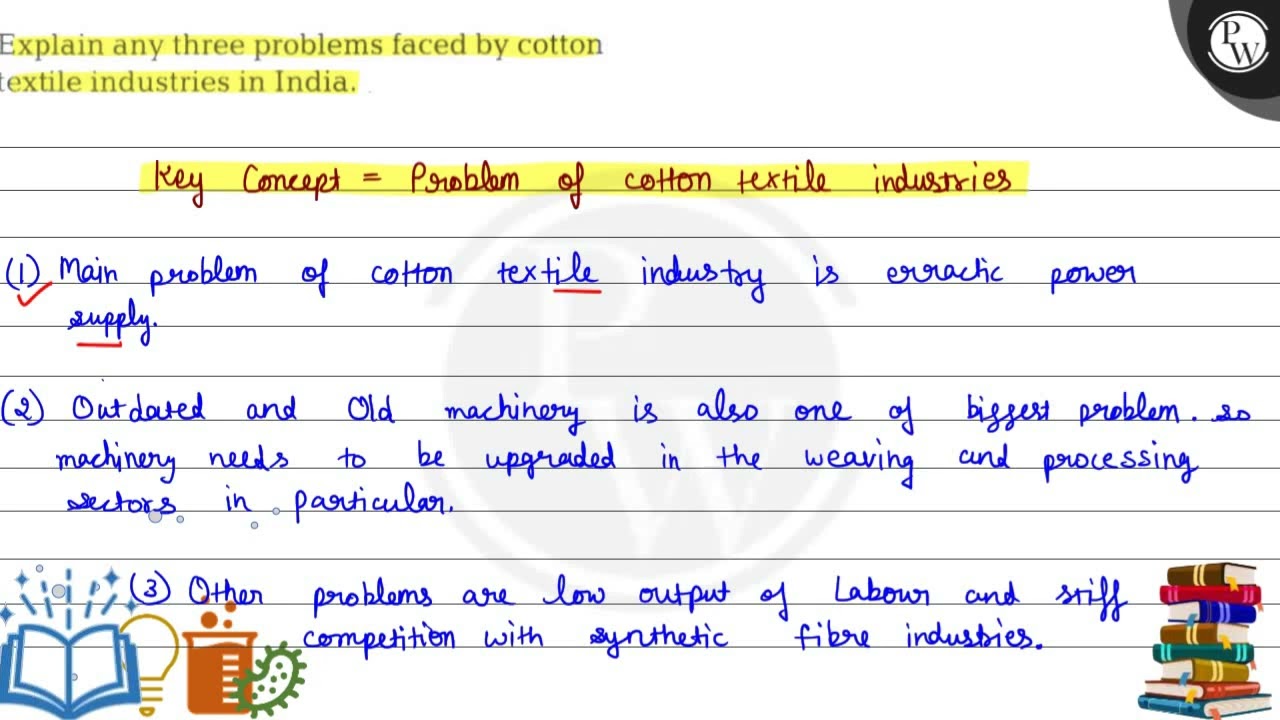 Explain any three problems faced by cotton
textile industries in India.
PW
Key Concept = Problem of cotton textile industries
(1) Main problem of cotton textile industry is erractic power
supply.
(2) Outdated and Old machinery is also one of biggest problem. so
machinery needs to be upgraded in the weaving and processing
sectors in particular.
(3) Other problems are low output of Labour and stiff
competition with synthetic fibre industries.